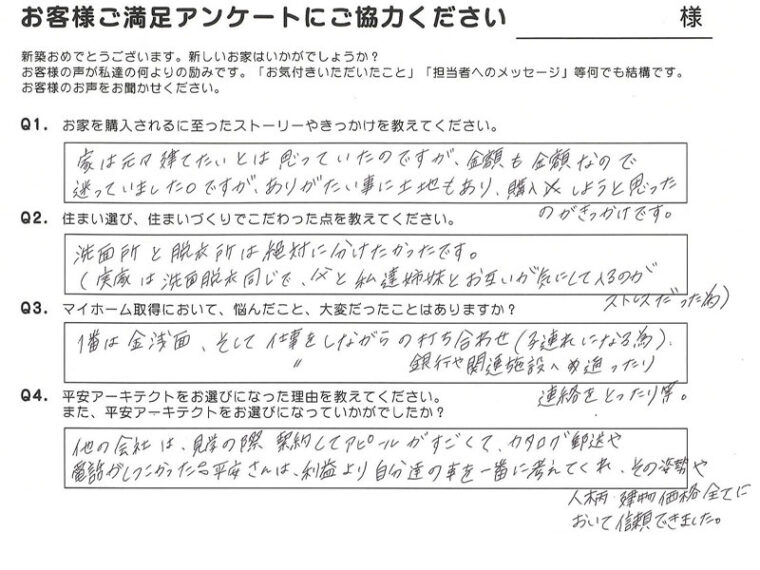 お客様ご満足アンケートにご協力ください
様
新築おめでとうございます。新しいお家はいかがでしょうか?
お客様の声が私達の何よりの励みです。「お気付きいただいたこと」「担当者へのメッセージ」等何でも結構です。
お客様のお声をお聞かせください。
Q1. お家を購入されるに至ったストーリーやきっかけを教えてください。
家は元々建てたいとは思っていたのですが、金額も金額なので
迷っていました。ですが、ありがたい事に土地もあり、購入しようと思った
のがきっかけです。
Q2. 住まい選び、住まいづくりでこだわった点を教えてください。
洗面所と脱衣所は絶対に分けたかったです。
(実家は洗面脱衣同じで、父と私達姉妹とお互いが気にして入るのが
ストレスだった為)
Q3. マイホーム取得において、悩んだこと、大変だったことはありますか?
1番は金銭面、そして仕事をしながらの打ち合わせ(子連れになる為)、
〃 銀行や関連施設への廻ったり
連絡をとったり等。
Q4. 平安アーキテクトをお選びになった理由を教えてください。
また、平安アーキテクトをお選びになっていかがでしたか?
他の会社は、見学の際契約してアピールがすごくて、カタログ郵送や
電話がしつこかった 平安さんは、利益より自分達の事を一番に考えてくれ、その姿勢や
人柄・建物価格全てに
おいて信頼できました。